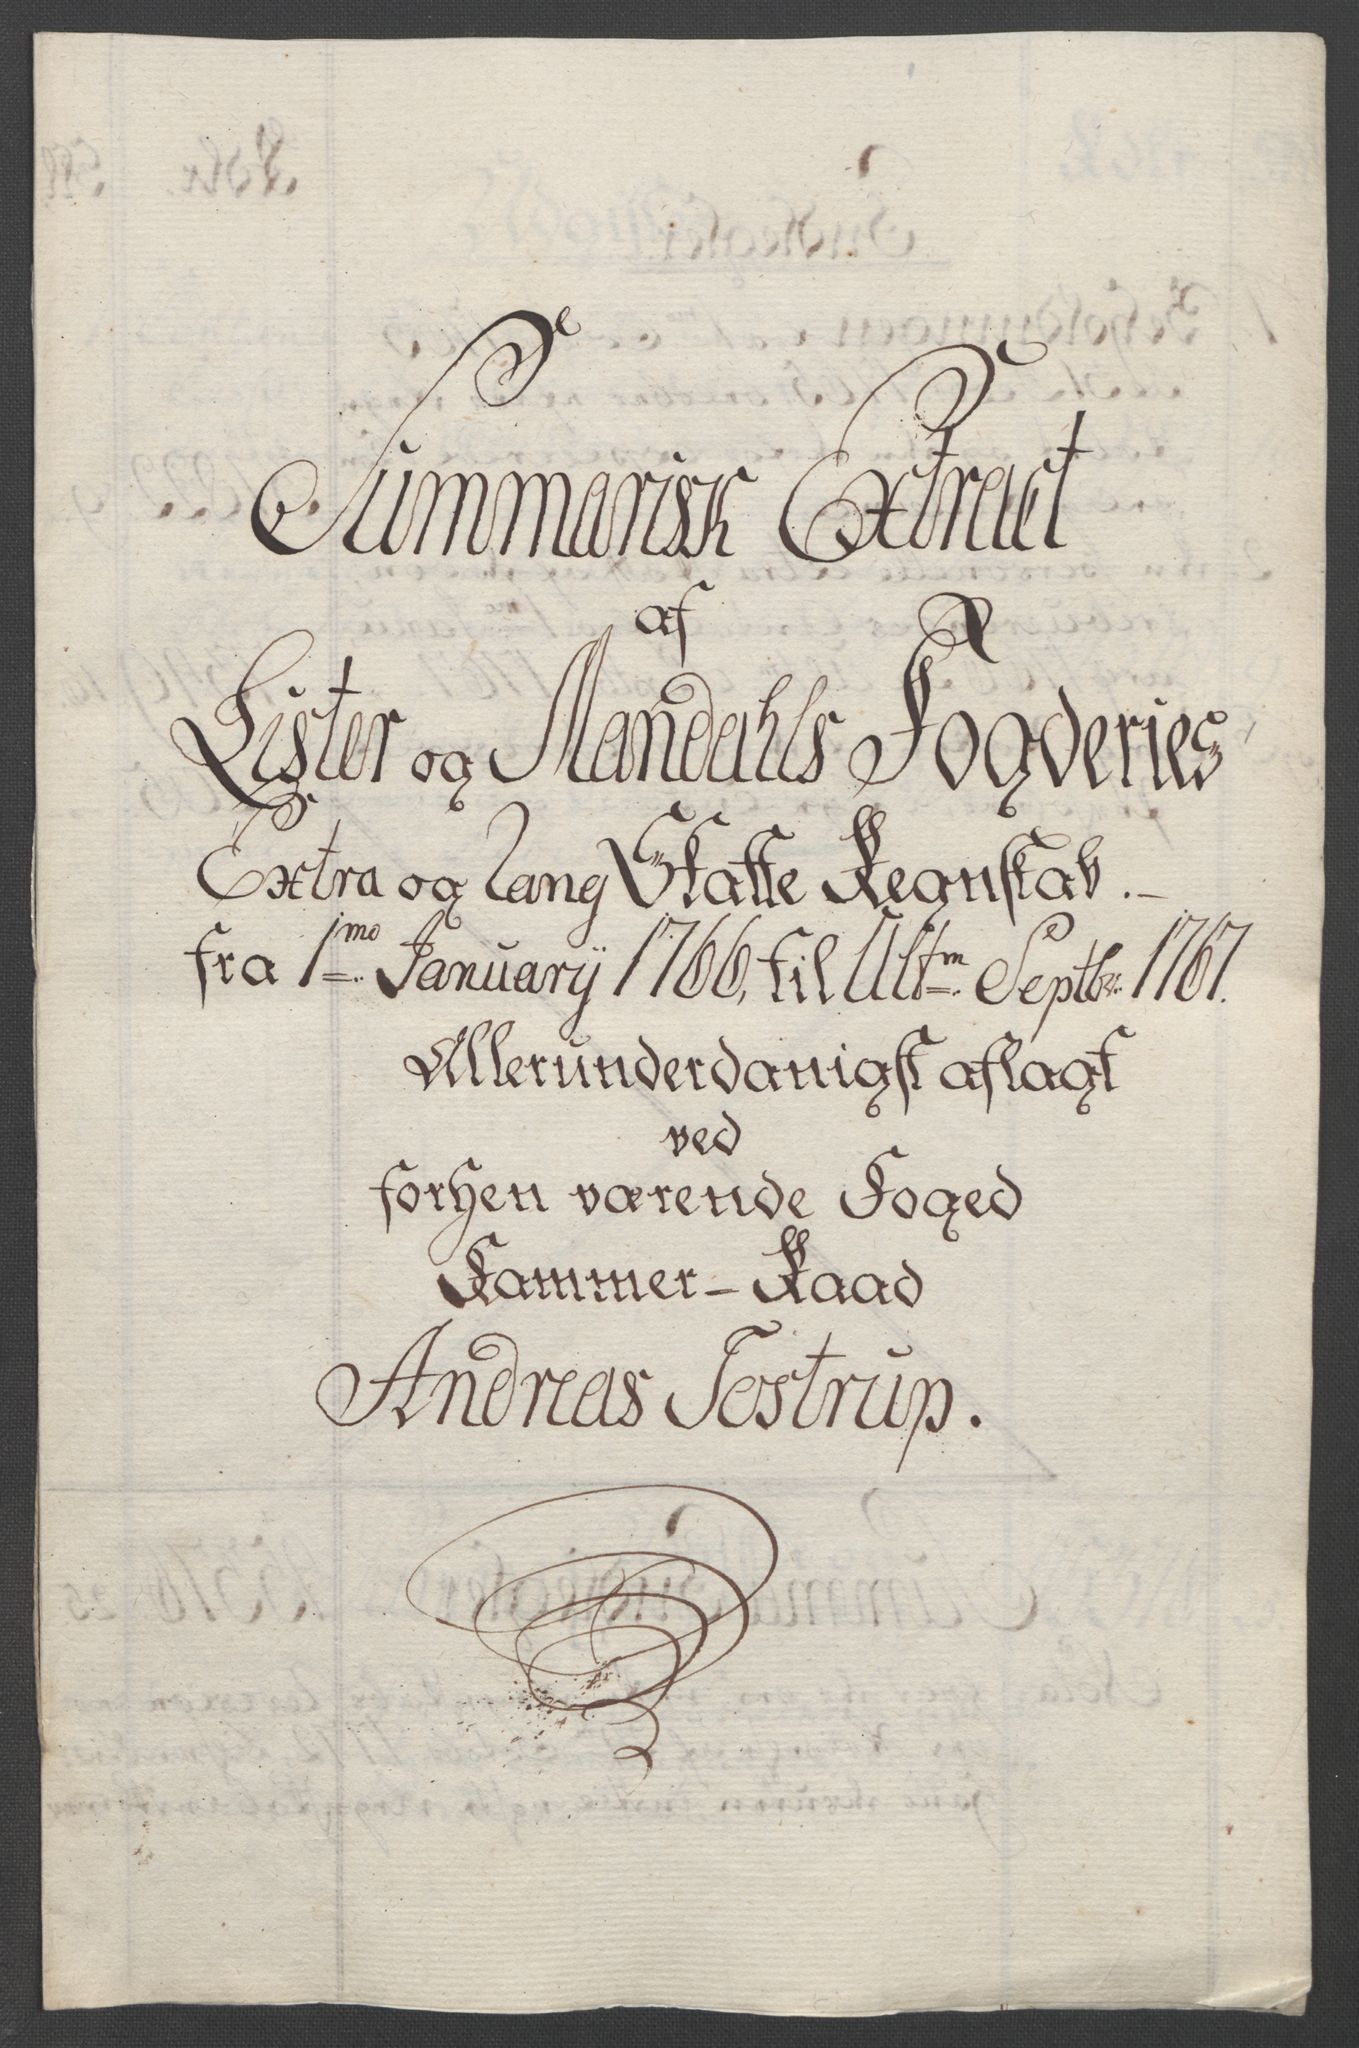 Summarisk Extract
af
Lister og Mandahls Fogderies
Extra og Tang Skatte Regnskab.
fra 1mo January 1766, til Ultm Septbr. 1767.
Allerunderdanigst aflagt
ved
forhen værende Foged
Kammer-Raad
Andreas Tostrup.